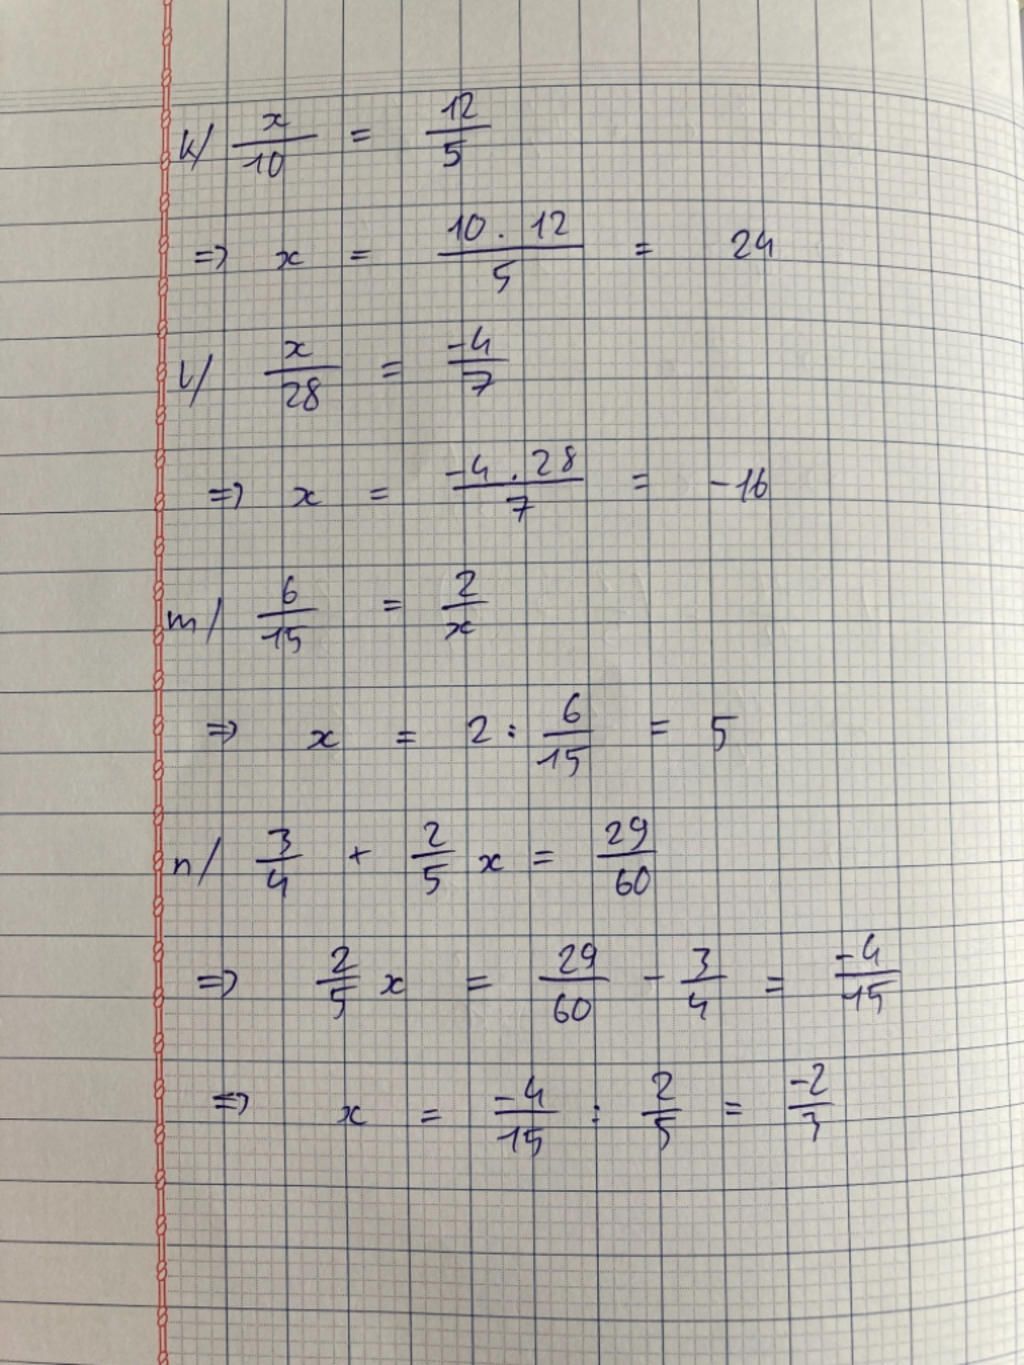 k/ x/10 = 12/5
=> x = (10 . 12)/5 = 24
l/ x/28 = -4/7
=> x = (-4 . 28)/7 = -16
m/ 6/15 = 2/x
=> x = 2 : 6/15 = 5
n/ 3/4 + 2/5 x = 29/60
=> 2/5 x = 29/60 - 3/4 = -4/15
=> x = -4/15 : 2/5 = -2/3